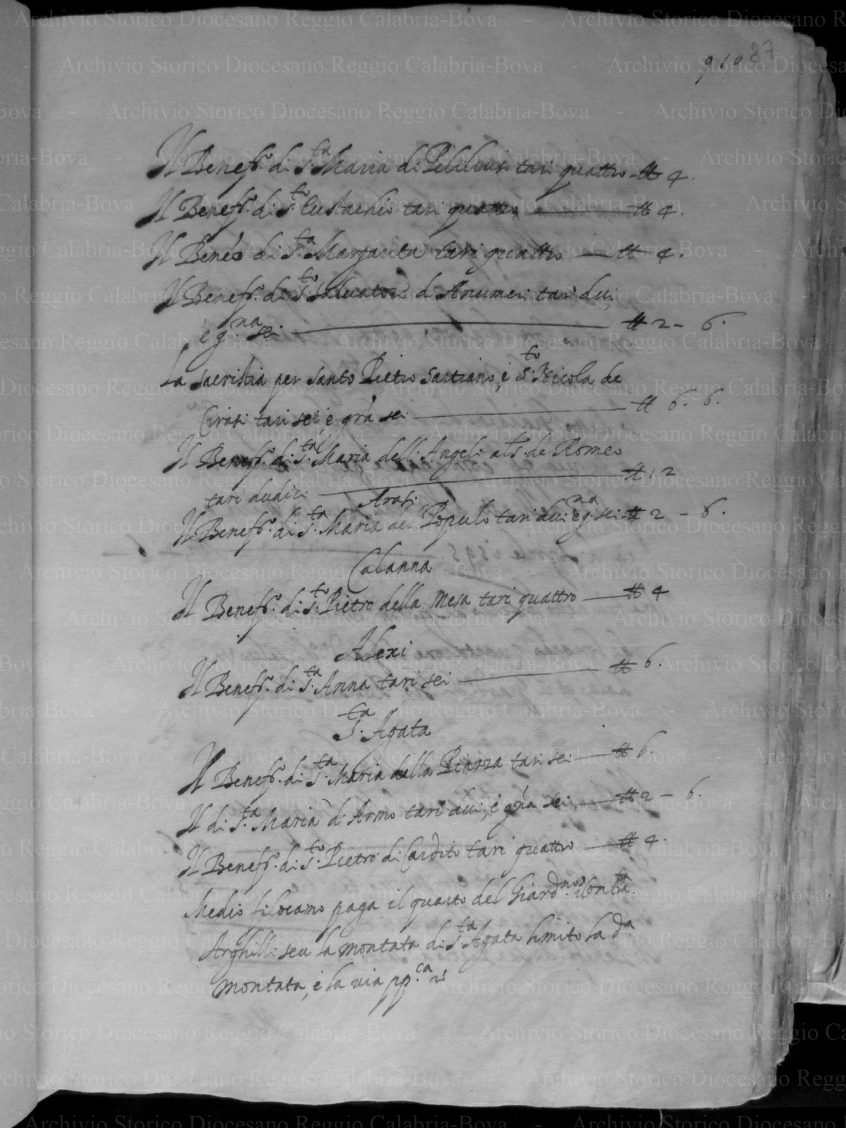 910 87
Il Benef.º di S.ta Maria di Pilileus tari quattro tt 4.
Il Benef.º di S.to Eustachio tari quattro tt 4.
Il Benef.º di S.ta Margarita tari quattro tt 4.
Il Benef.º di S.to Salvatore d'Anumeri tari dui,
è g.na sei tt 2 - 6.
La sacristia per santo Pietro Sartiano, è S.to Nicola de
Cirati tari sei, è grà sei tt 6. 6.
Il Benef.º di S.ta Maria dell'Angeli als de Romeo
tari dudici tt 12
Arasi
Il Benef.º di S.ta Maria del Populo tari dui è g.na sei tt 2 - 6.
Calanna
Il Benef.º di S.to Pietro della Mesa tari quattro tt 4
Alexi
Il Benef.º di S.ta Anna tari sei tt 6.
S.ta Agata
Il Benef.º di S.ta Maria della Piazza tari sei tt 6.
Il di S.ta Maria d'Armo tari dui, è grà sei tt 2 - 6.
Il Benef.º di S.to Pietro di Cardito tari quattro tt 4.
Medio filocamo paga il quarto del Giard.no
Arghilli: seu la montata di S.ta Agata limito la d.a
montata, è la via pp.ca